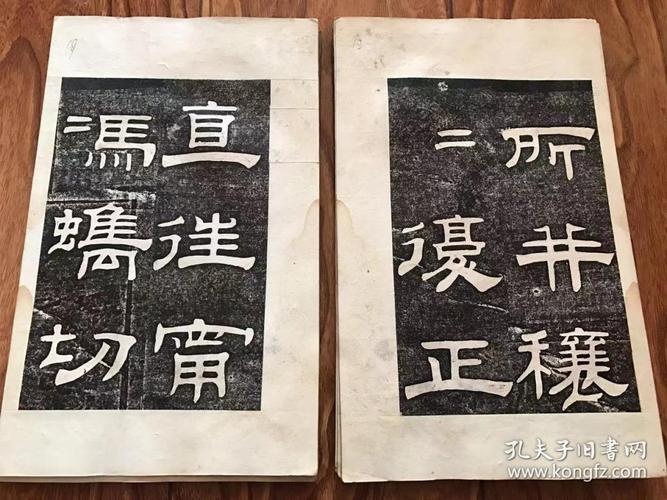 所井穰
二復正
直往甯
馮切
孔夫子旧书网
www.kongfz.com